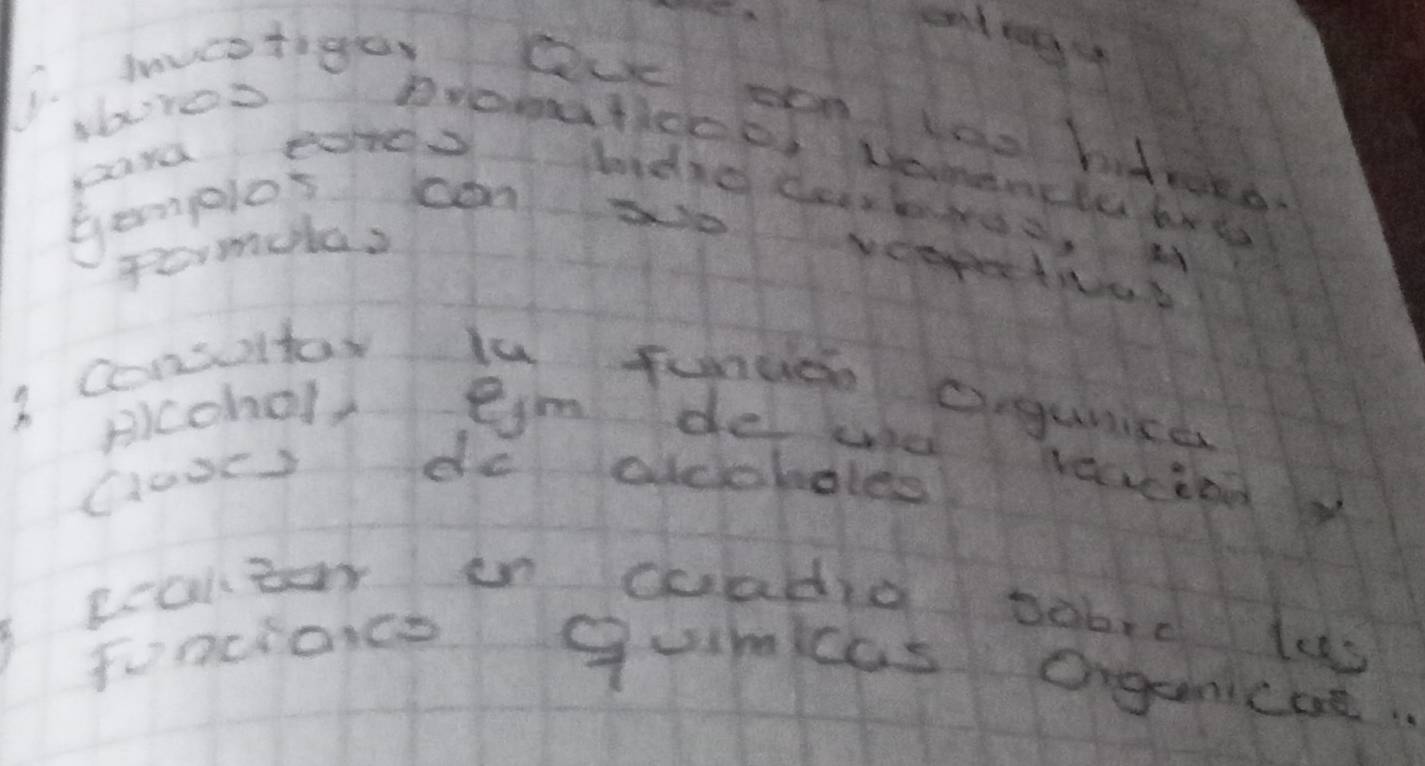 1. Investigar Que son los hidroca-
rburos Aromaticos, Nomenclatura
para estos hidrocarburos, y
Ejemplos con sus respectivas
Formulas
2 Consultar la función Organica
Alcohol, Ejm de una reacción y
Clases de alcoholes
Realizar un cuadro sobre las
Funciones Químicas Organicas..